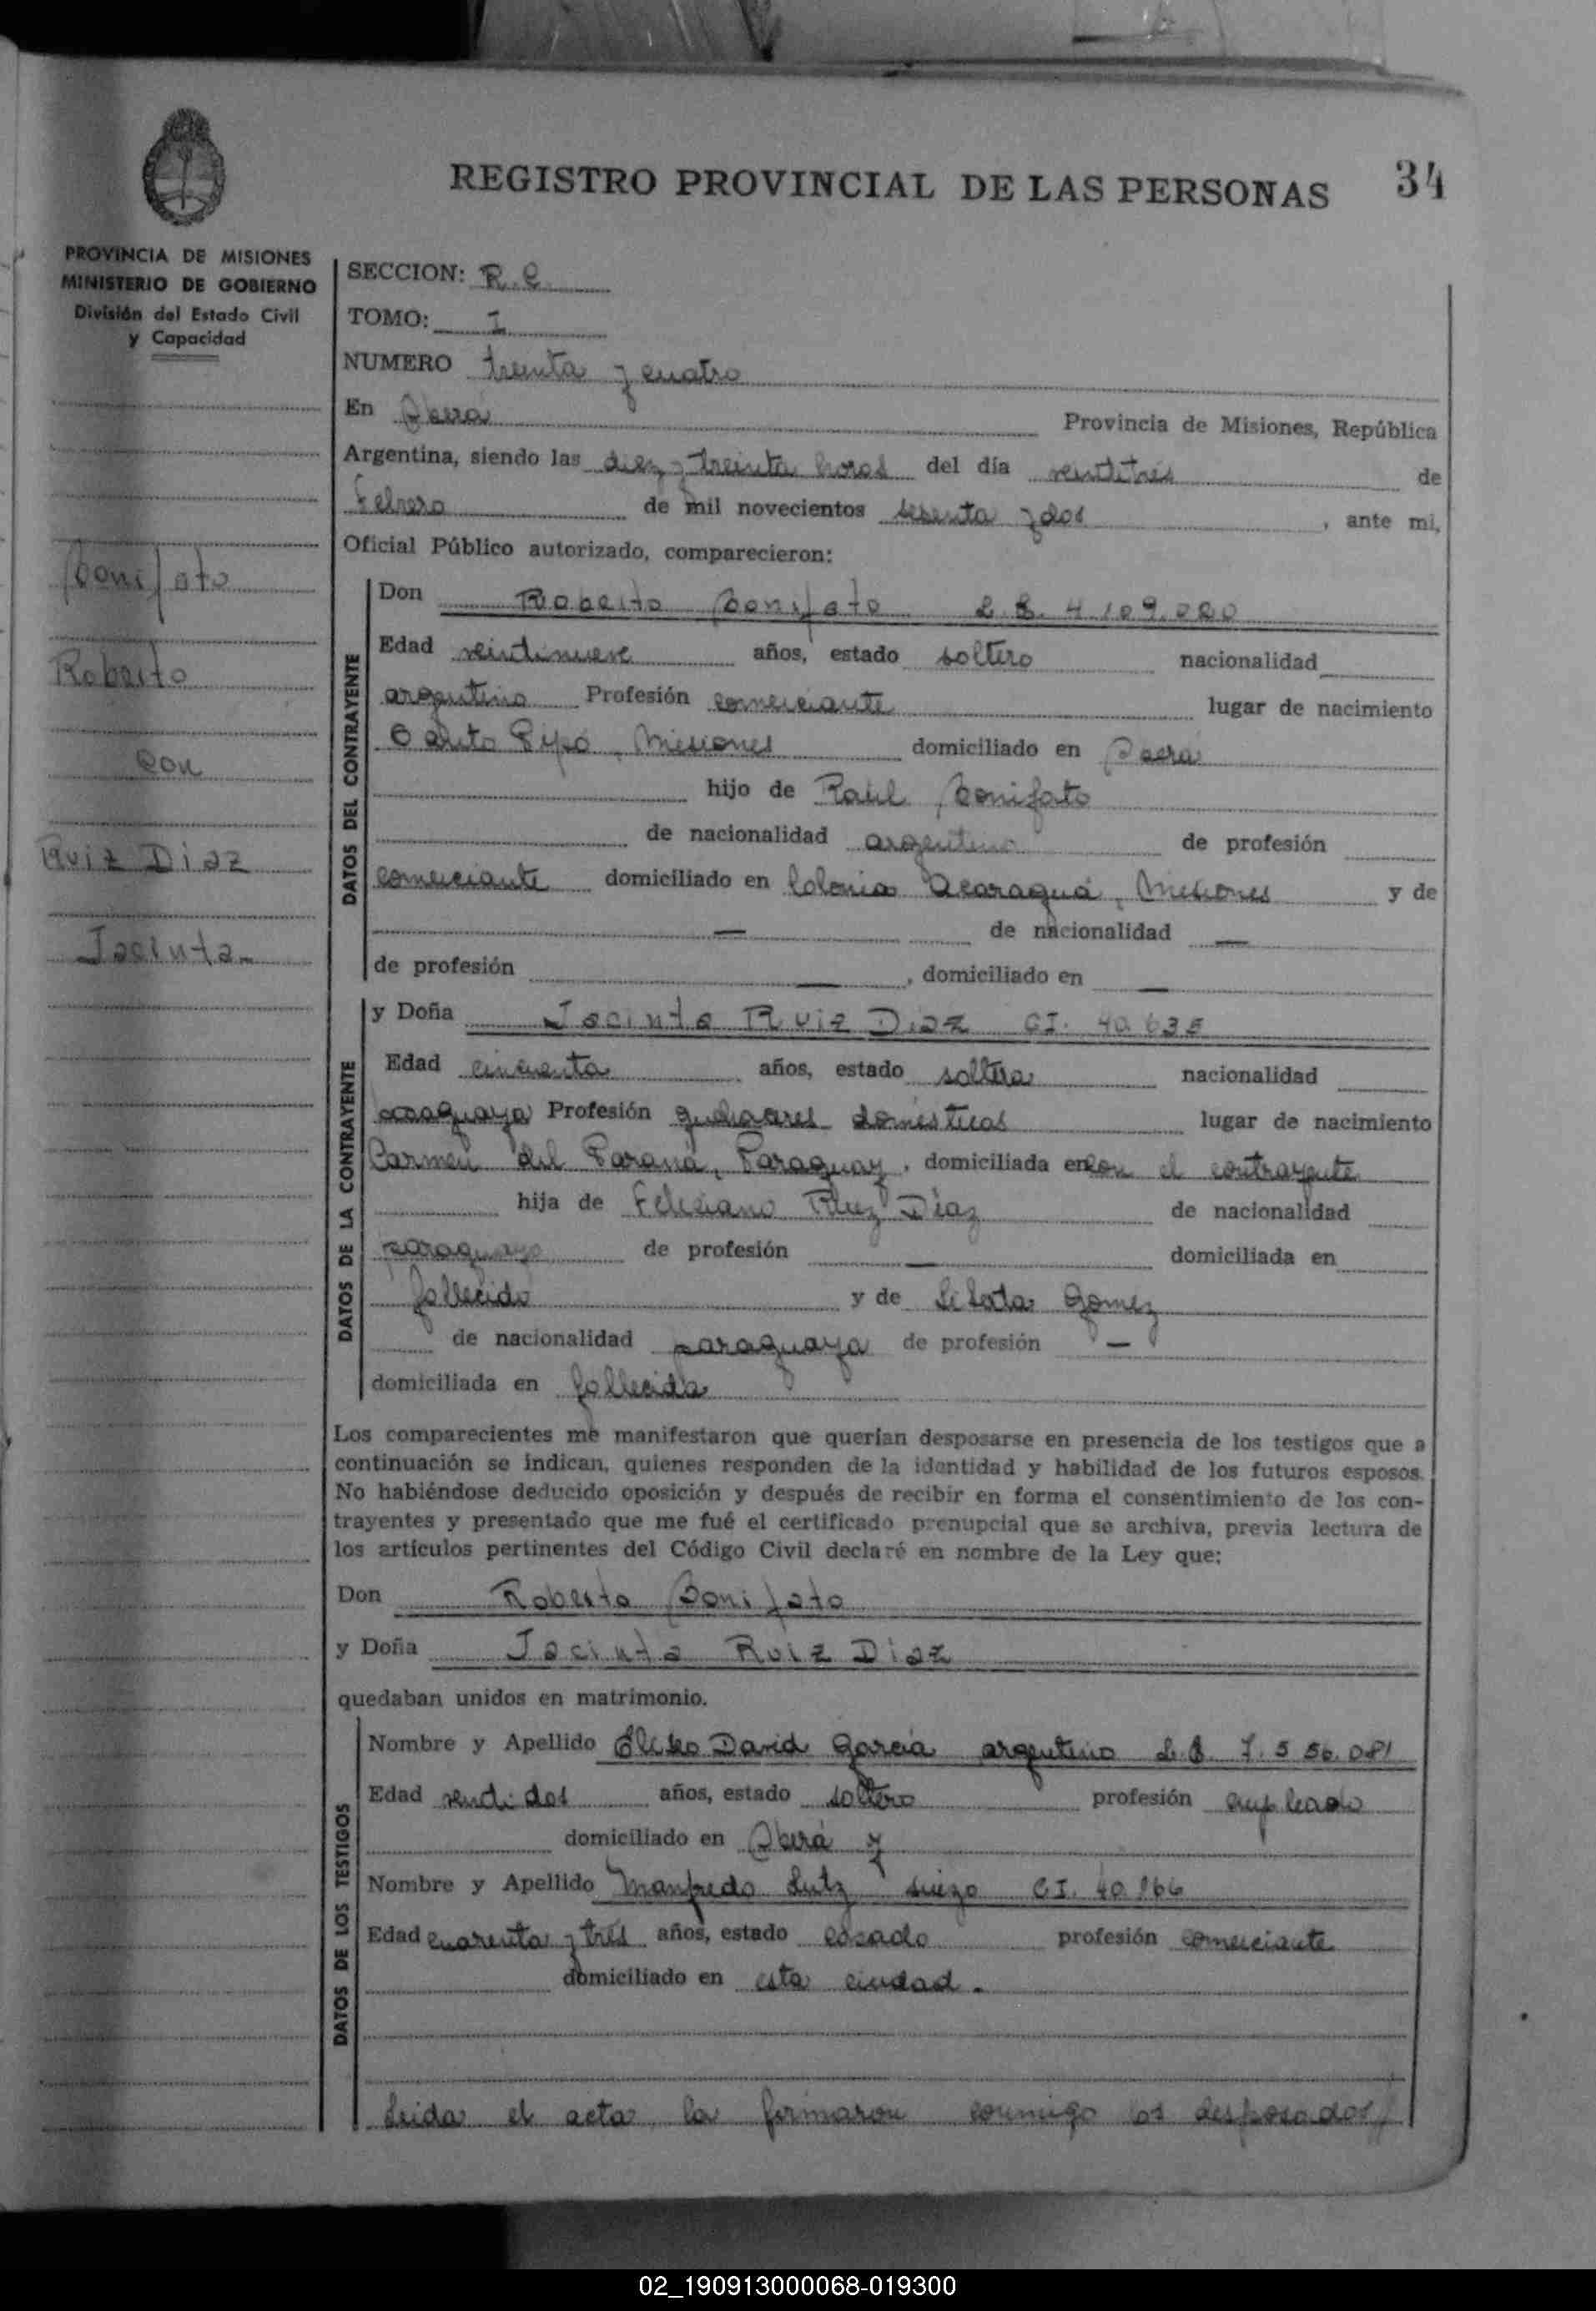 REGISTRO PROVINCIAL DE LAS PERSONAS 34
PROVINCIA DE MISIONES
MINISTERIO DE GOBIERNO
División del Estado Civil
y Capacidad
Bonifato
Roberto
con
Ruiz Diaz
Jacinta
SECCION: R.C.
TOMO: I
NUMERO treinta y cuatro
En Oberá Provincia de Misiones, República
Argentina, siendo las diez y treinta horas del día veintitrés de
Febrero de mil novecientos sesenta y dos, ante mi,
Oficial Público autorizado, comparecieron:
DATOS DEL CONTRAYENTE
Don Roberto Bonifato
Edad veintinueve años, estado soltero nacionalidad
argentino Profesión comerciante lugar de nacimiento
Misiones domiciliado en Oberá
hijo de Raúl Bonifato
de nacionalidad argentino de profesión
comerciante domiciliado en Colonia Acaraguá, Misiones y de
— de nacionalidad —
de profesión —, domiciliado en —
DATOS DE LA CONTRAYENTE
y Doña Jacinta Ruiz Diaz CI. 40.635
Edad cincuenta años, estado soltera nacionalidad
paraguaya Profesión quehaceres domésticos lugar de nacimiento
Carmen del Paraná, Paraguay, domiciliada en con el contrayente
hija de Feliciano Ruiz Díaz de nacionalidad
paraguayo de profesión — domiciliada en
fallecido y de Gomez
de nacionalidad paraguaya de profesión —
domiciliada en fallecida
Los comparecientes me manifestaron que querían desposarse en presencia de los testigos que a
continuación se indican, quienes responden de la identidad y habilidad de los futuros esposos.
No habiéndose deducido oposición y después de recibir en forma el consentimiento de los con-
trayentes y presentado que me fué el certificado prenupcial que se archiva, previa lectura de
los artículos pertinentes del Código Civil declaré en nombre de la Ley que:
Don Roberto Bonifato
y Doña Jacinta Ruiz Diaz
quedaban unidos en matrimonio.
DATOS DE LOS TESTIGOS
Nombre y Apellido David García argentino 7.556.081
Edad veintidos años, estado soltero profesión empleado
domiciliado en Oberá y
Nombre y Apellido Manfredo Lutz suizo CI. 40.166
Edad cuarenta y tres años, estado casado profesión comerciante
domiciliado en esta ciudad.
Leida el acta la firmaron conmigo los desposados
02_190913000068-019300